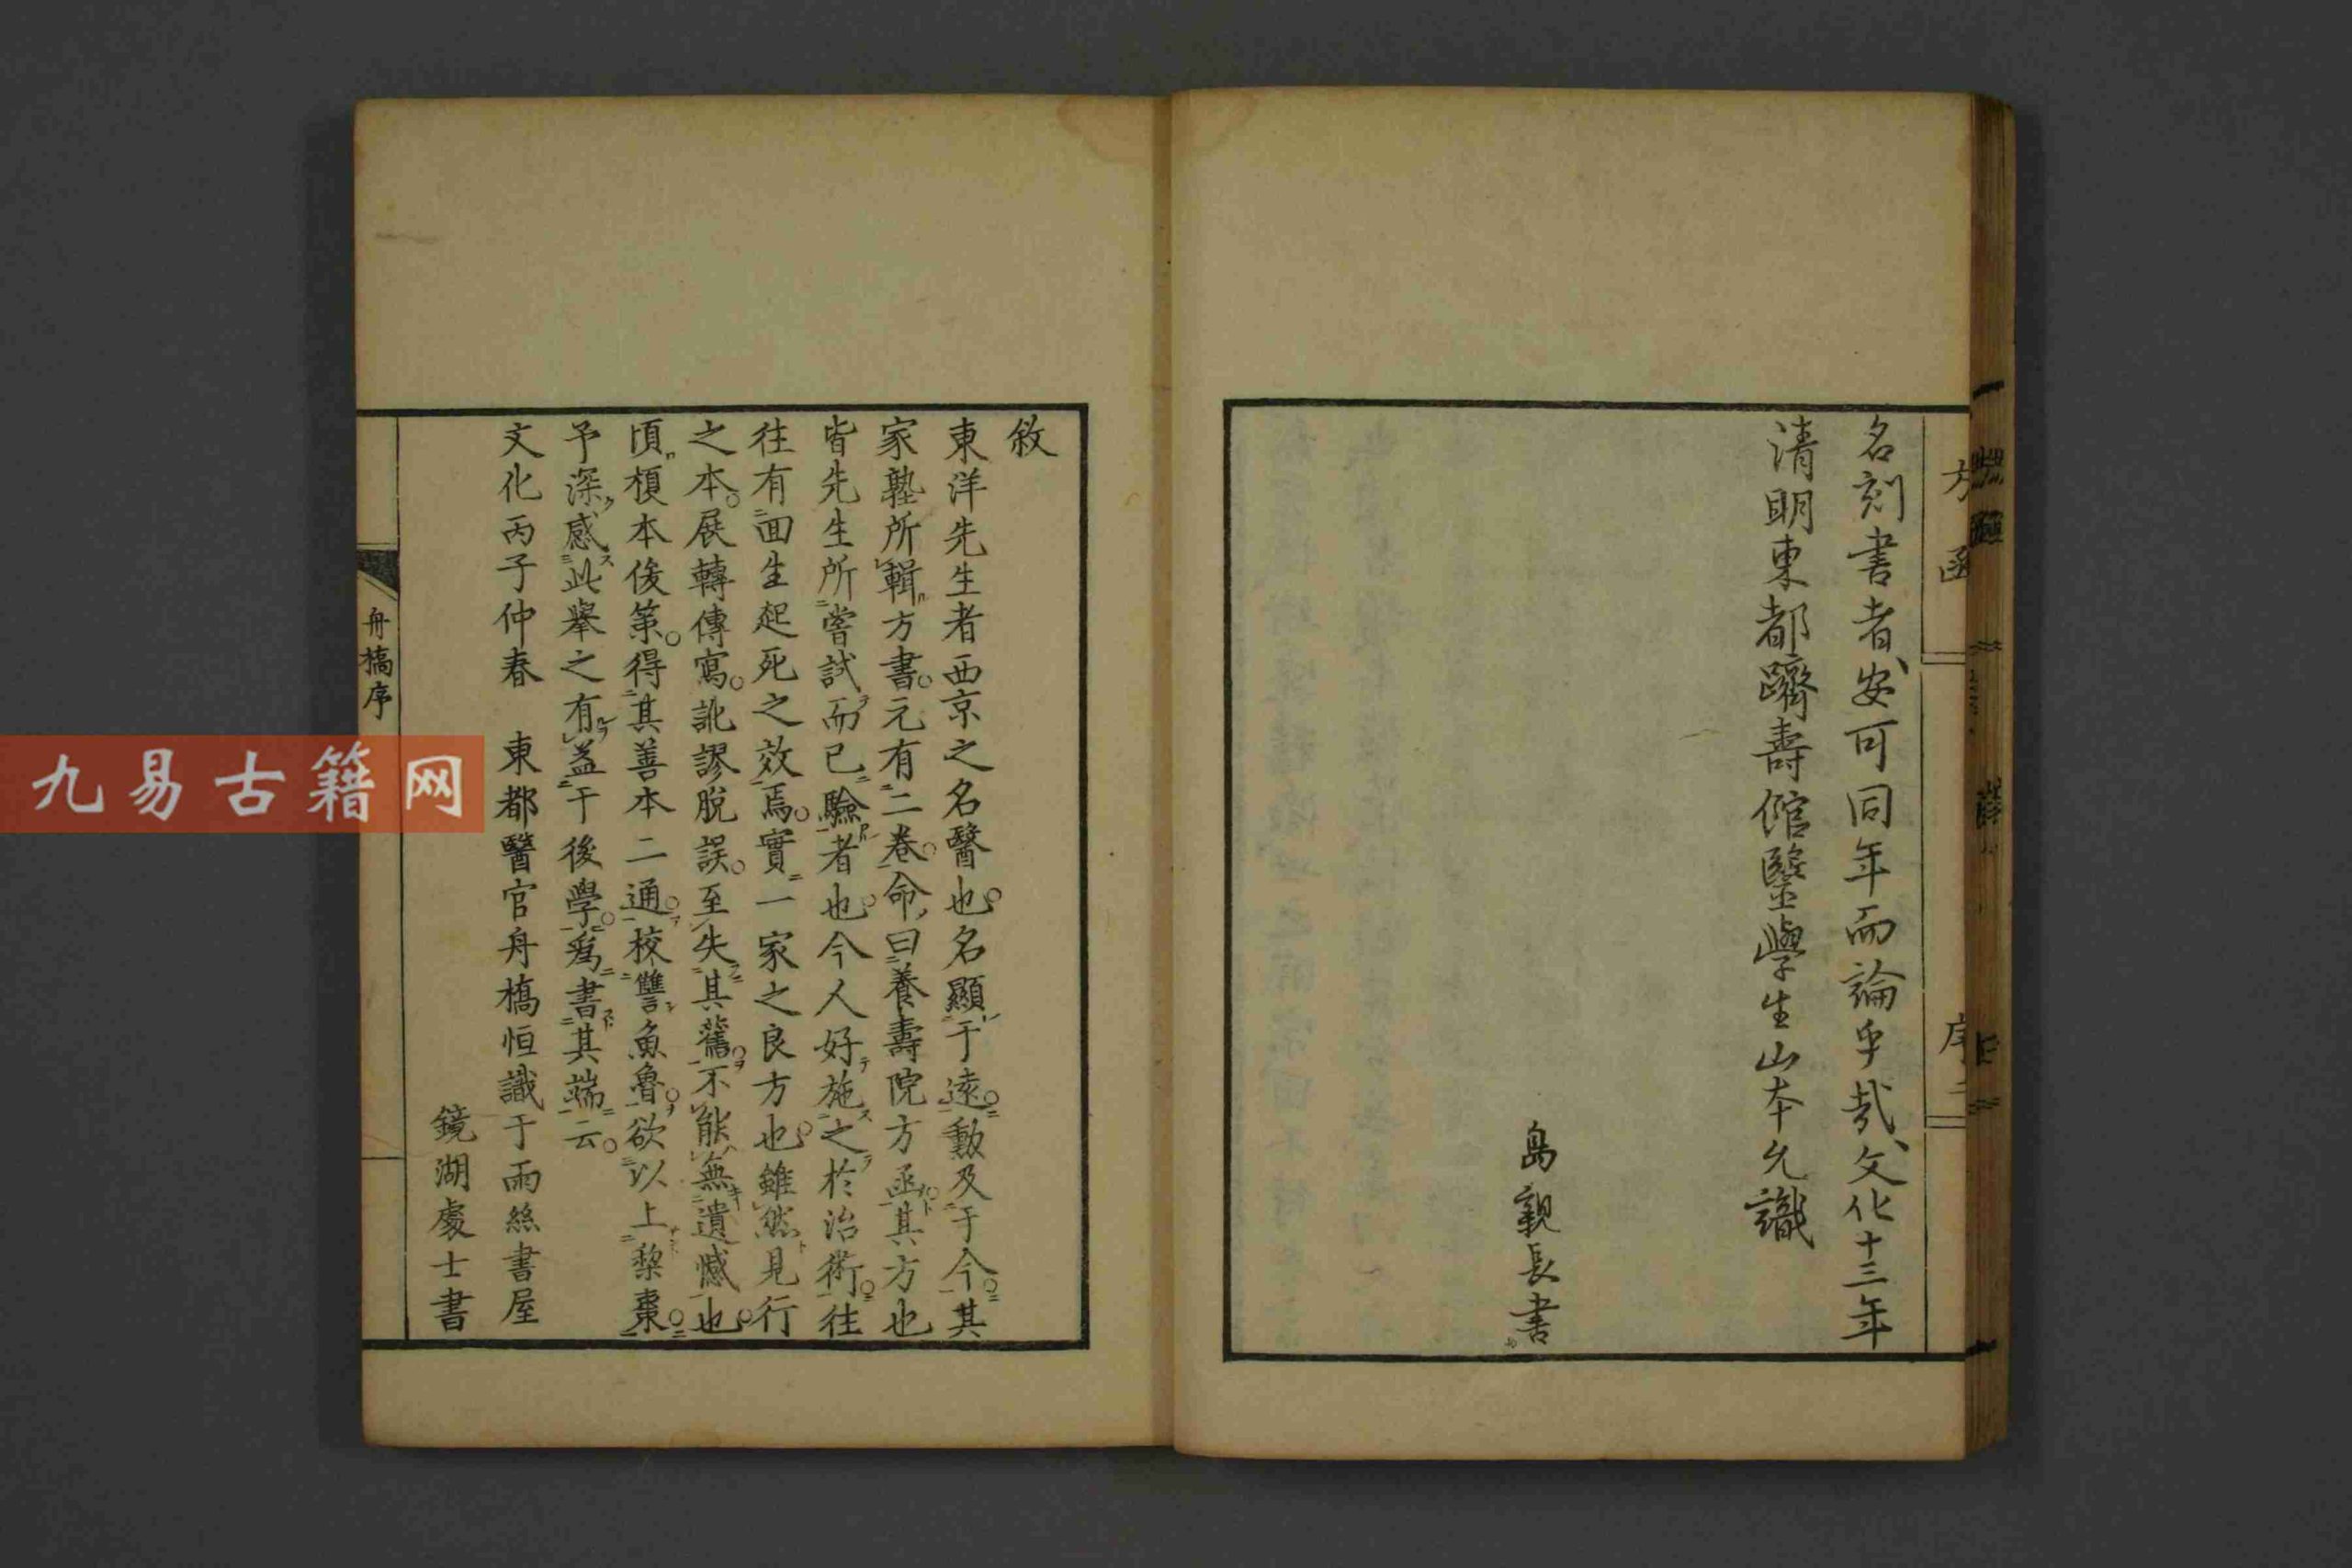 名刻書者安可同年而論乎哉文化十三年
清明東都躋壽館醫學生山本允識
島親長書
方函
序
敘
東洋先生者西京之名醫也名顯于遠勳及于今其
家塾所輯方書元有二卷命曰養壽院方函其方也
皆先生所嘗試而已驗者也今人好施之於治術往
往有回生起死之效焉實一家之良方也雖然見行
之本展轉傳寫訛謬脫誤至失其舊不能無遺憾也
頃榎本俊策得其善本二通校讐魚魯欲以上棃棗
予深感此舉之有益于後學爲書其端云
文化丙子仲春 東都醫官舟橋恒識于雨絲書屋
鏡湖處士書
舟橋序
九易古籍网